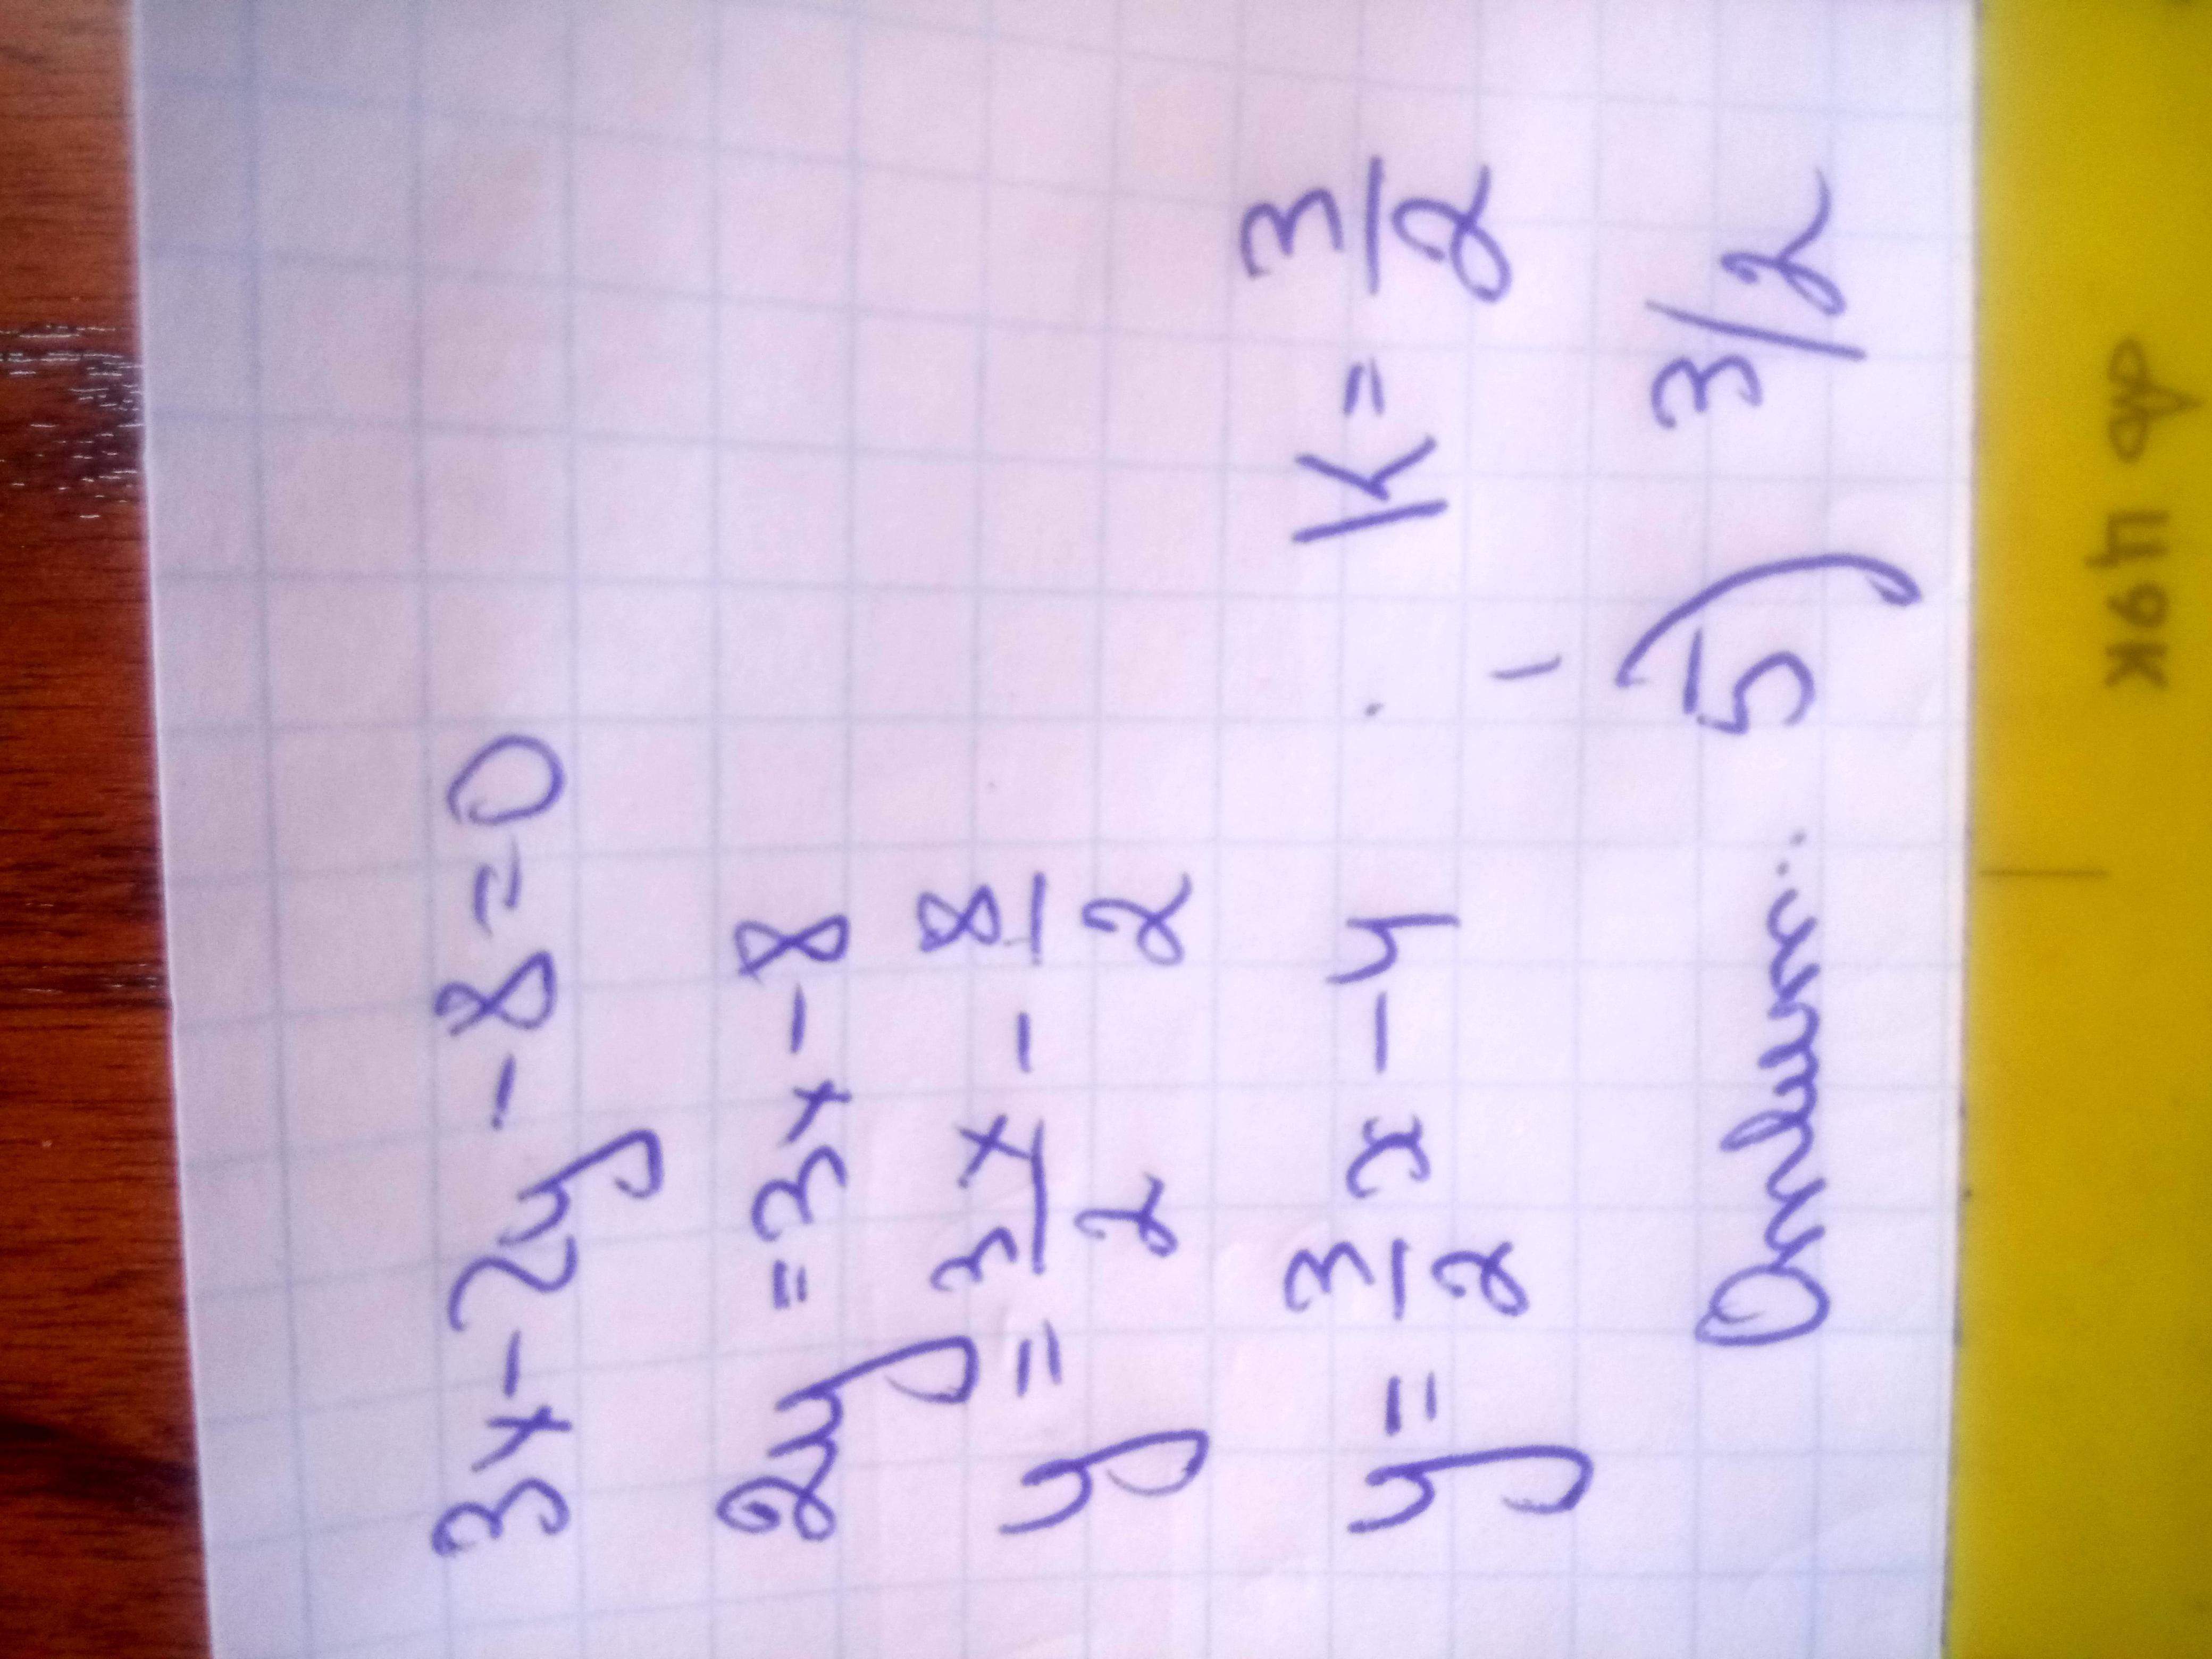 3x - 2y - 8 = 0
2y = 3x - 8
y = 3x/2 - 8/2
y = 3/2 x - 4 . k = 3/2
Ответ: 5) 3/2